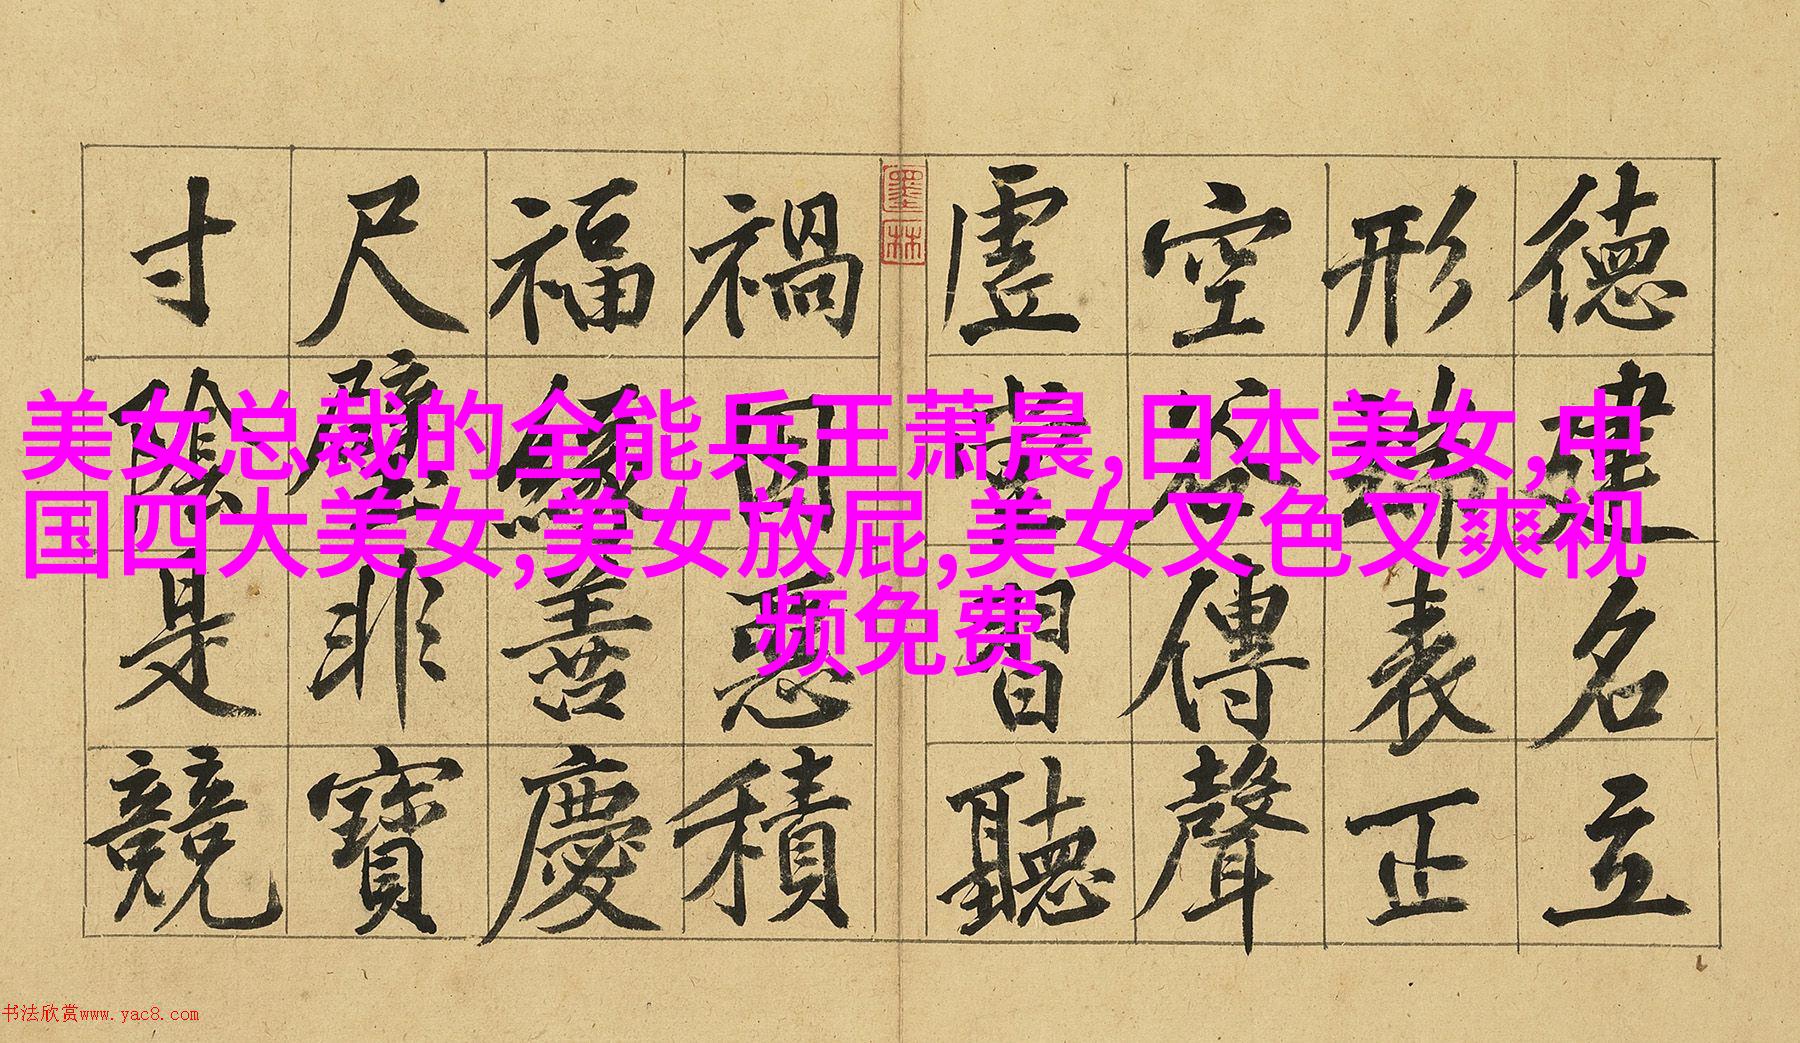 德建名立
形端表正
空谷傳聲
虛堂習聽
墨林
禍因惡積
福緣善慶
尺璧非寶
寸陰是競
美女总裁的全能兵王萧晨,日本美女,中
国四大美女,美女放屁,美女又色又爽视
频免费
书法欣赏www.yac8.com